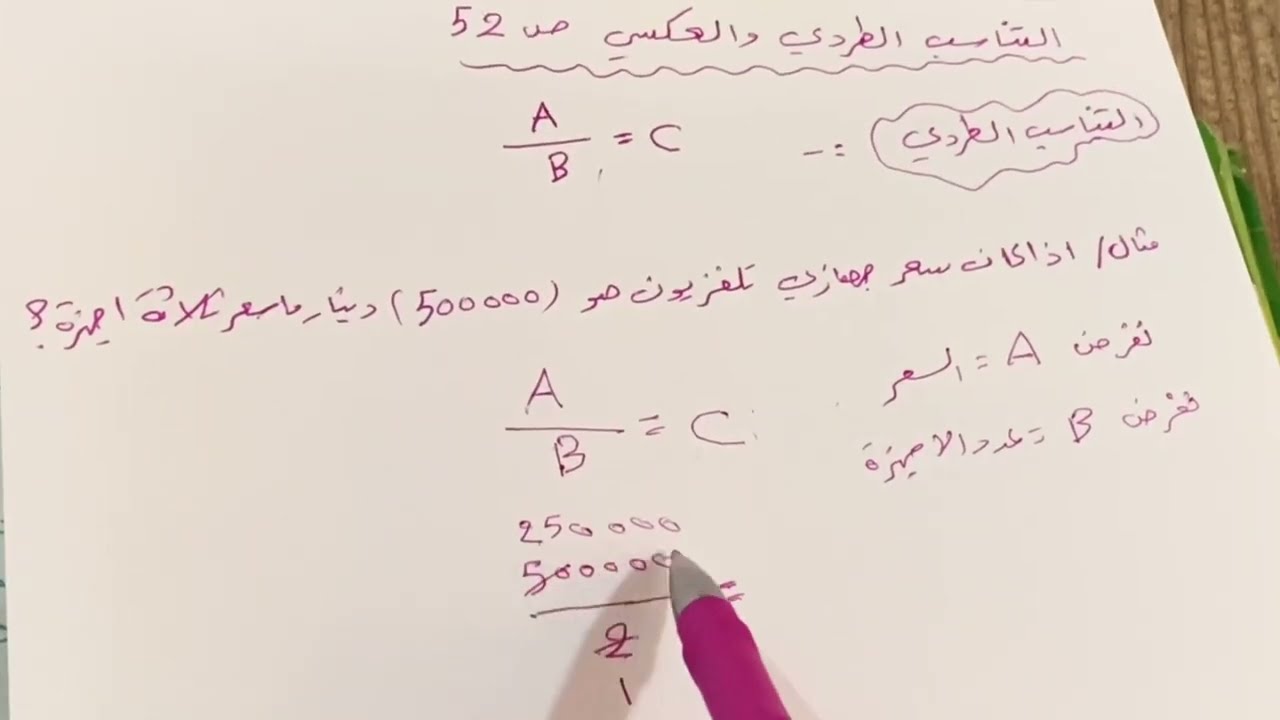 التناسب الطردي والعكسي ص 52
التناسب الطردي :-
A/B = C
مثال/ اذا كان سعر جهازي تلفزيون هو (500000) دينار ما سعر ثلاثة اجهزة؟
نفرض A = السعر
نفرض B = عدد الاجهزة
A/B = C
250000
500000
2 =
1